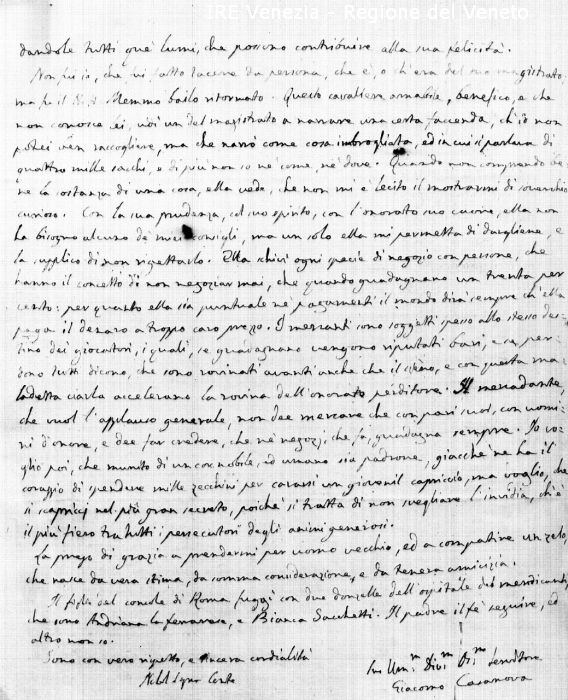 IRE Venezia - Regione del Veneto
dandole tutti que' lumi, che possono contribuire alla sua felicità.
Non fui io, che fui fatto tacere da persona, che è, o ch'era del suo magistrato,
ma fu il Memmo bailo ritornato. Questo cavaliere amabile, benefico, e che
non conosce lei, udì un del magistrato a narrare una certa facenda, ch'io non
potei ben raccogliere, ma che narrò come cosa imbrogliata, ed in cui si parlava di
quattro mille sacchi, e di più non so nè come, nè dove. Quando non comprendo be-
ne la sostanza di una cosa, ella vede, che non mi è lecito il mostrarmi di soverchio
curioso. Con la sua prudenza, col suo spirito, con l'onorato suo cuore, ella non
ha bisogno alcuno de' miei consigli, ma un solo ella mi permetta di dargliene, e
la supplico di non rigettarlo. Ella schivi ogni specie di negozio con persone, che
hanno il concetto di non negoziar mai, che quando guadagnano un trenta per
cento: per quanto ella sia puntuale ne' pagamenti il mondo dirà sempre ch'ella
paga il denaro a troppo caro prezo. I mercanti sono soggetti spesso allo stesso des-
tino dei giocatori, i quali, se guadagnano vengono riputati bari, e se per-
dono tutti dicono, che sono rovinati avanti anche che il sieno, e con questa ma-
ladetta ciarla accelerano la rovina dell'onorato perditore. Il mercadante,
che vuol l'applauso generale, non dee mercare che con pari suoi, con uomi-
ni d'onore, e dee far credere, che ne' negozj, che fa, guadagna sempre. Io vo-
glio poi, che munito di un cor nobile, ed umano sia padrone, giacchè ne ha il
coraggio di spendere mille zecchini per cavarsi un giovenil capriccio, ma voglio, che
si scapricci nel più gran secreto, poichè si tratta di non svegliare l'invidia, ch'è
il più fiero tra tutti i persecutori degli animi generosi.
La prego di grazia a prendermi per uomo vecchio, ed a compatire un zelo,
che nasce da vera stima, da somma considerazione, e da tenera amicizia.
Il figlio del console di Roma fuggì con due donzelle dell'ospitale dei mendicanti,
che sono Andriana la ferrarese, e Bianca Sacchetti. Il padre il fè seguire, ed
altro non so.
Sono con vero rispetto, e sincera cordialità
Suo Um.m Div.m Ob.m Servitore
Giacomo Casanova